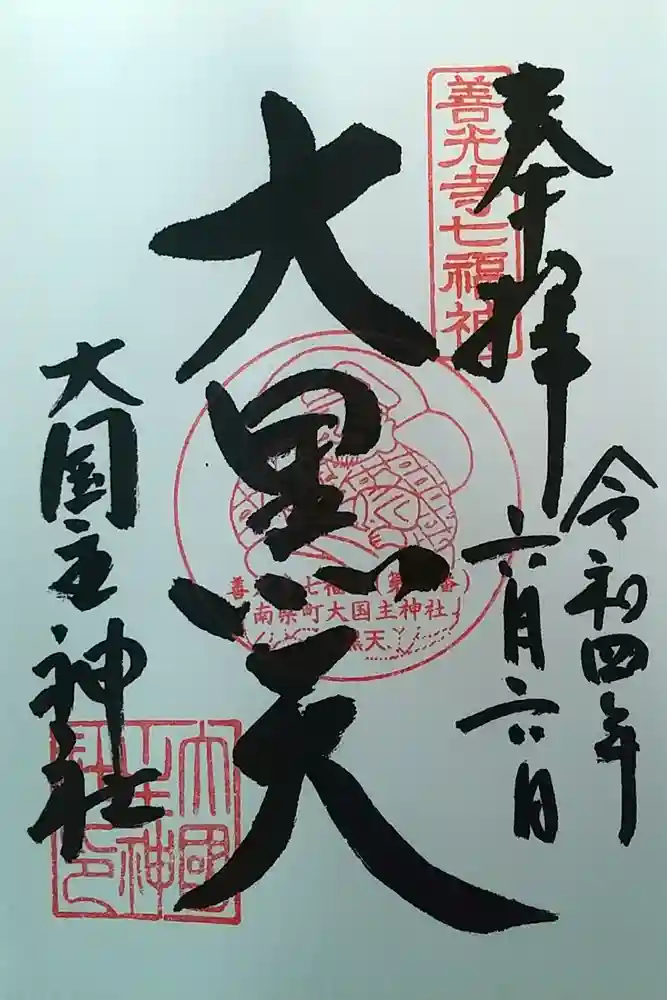 奉拝
善光寺七福神
令和四年
六月六日
大黒天
南県町大国主神社
大国主神社